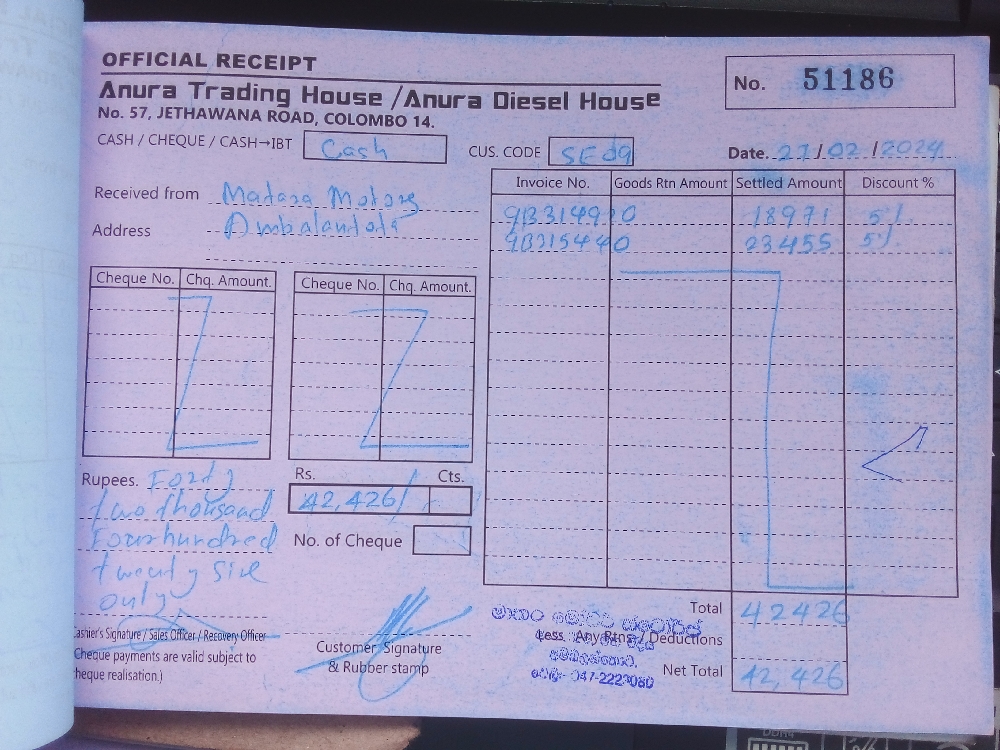 OFFICIAL RECEIPT
Anura Trading House / Anura Diesel House
No. 57, JETHAWANA ROAD, COLOMBO 14.
No. 51186
CASH / CHEQUE / CASH→IBT Cash
CUS. CODE SE09
Date. 27/02/2024
Received from Madara Motors
Address Ambalantota
Invoice No. Goods Rtn Amount Settled Amount Discount %
9B331499 0 18971 5%
9B315440 23455 5%
Cheque No. Chq. Amount. Cheque No. Chq. Amount.
Rupees. Forty
two thousand
Four hundred
twenty six
only
Rs. Cts.
42,426/
No. of Cheque
Total 42426
Less : Any Rtns / Deductions
Net Total 42,426
Cashier's Signature / Sales Officer / Recovery Officer
Cheque payments are valid subject to
cheque realisation.)
Customer Signature
& Rubber stamp
047-2223080